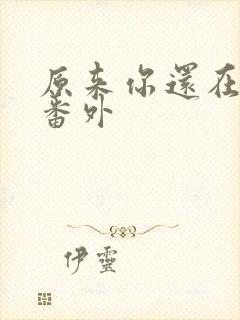 原来你還在
番外
伊靈